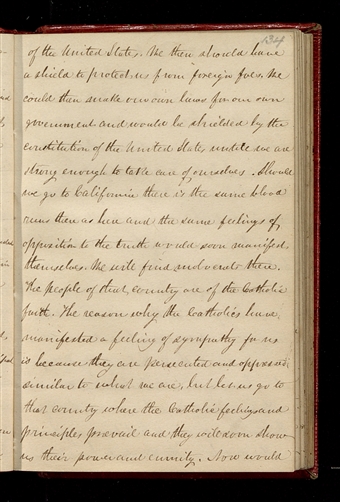 134
of the United States. We then should have
a shield to protect us from foreign foes. We
could then make our own laws for our own
government and would be shielded by the
constitution of the United States until we are
strong enough to take care of ourselves. Should
we go to California there is the same blood
runs there as here and the same feelings of
opposition to the truth would soon manifest
themselves. We will find mobocrats there.
The people of that country are of the Catholic
faith. The reason why the Catholics have
manifested a feeling of sympathy for us
is because they are persecuted and oppressed
similar to what we are, but let us go to
that country where the Catholic feelings and
principles prevail and they will soon show
us their power and enmity. Now would